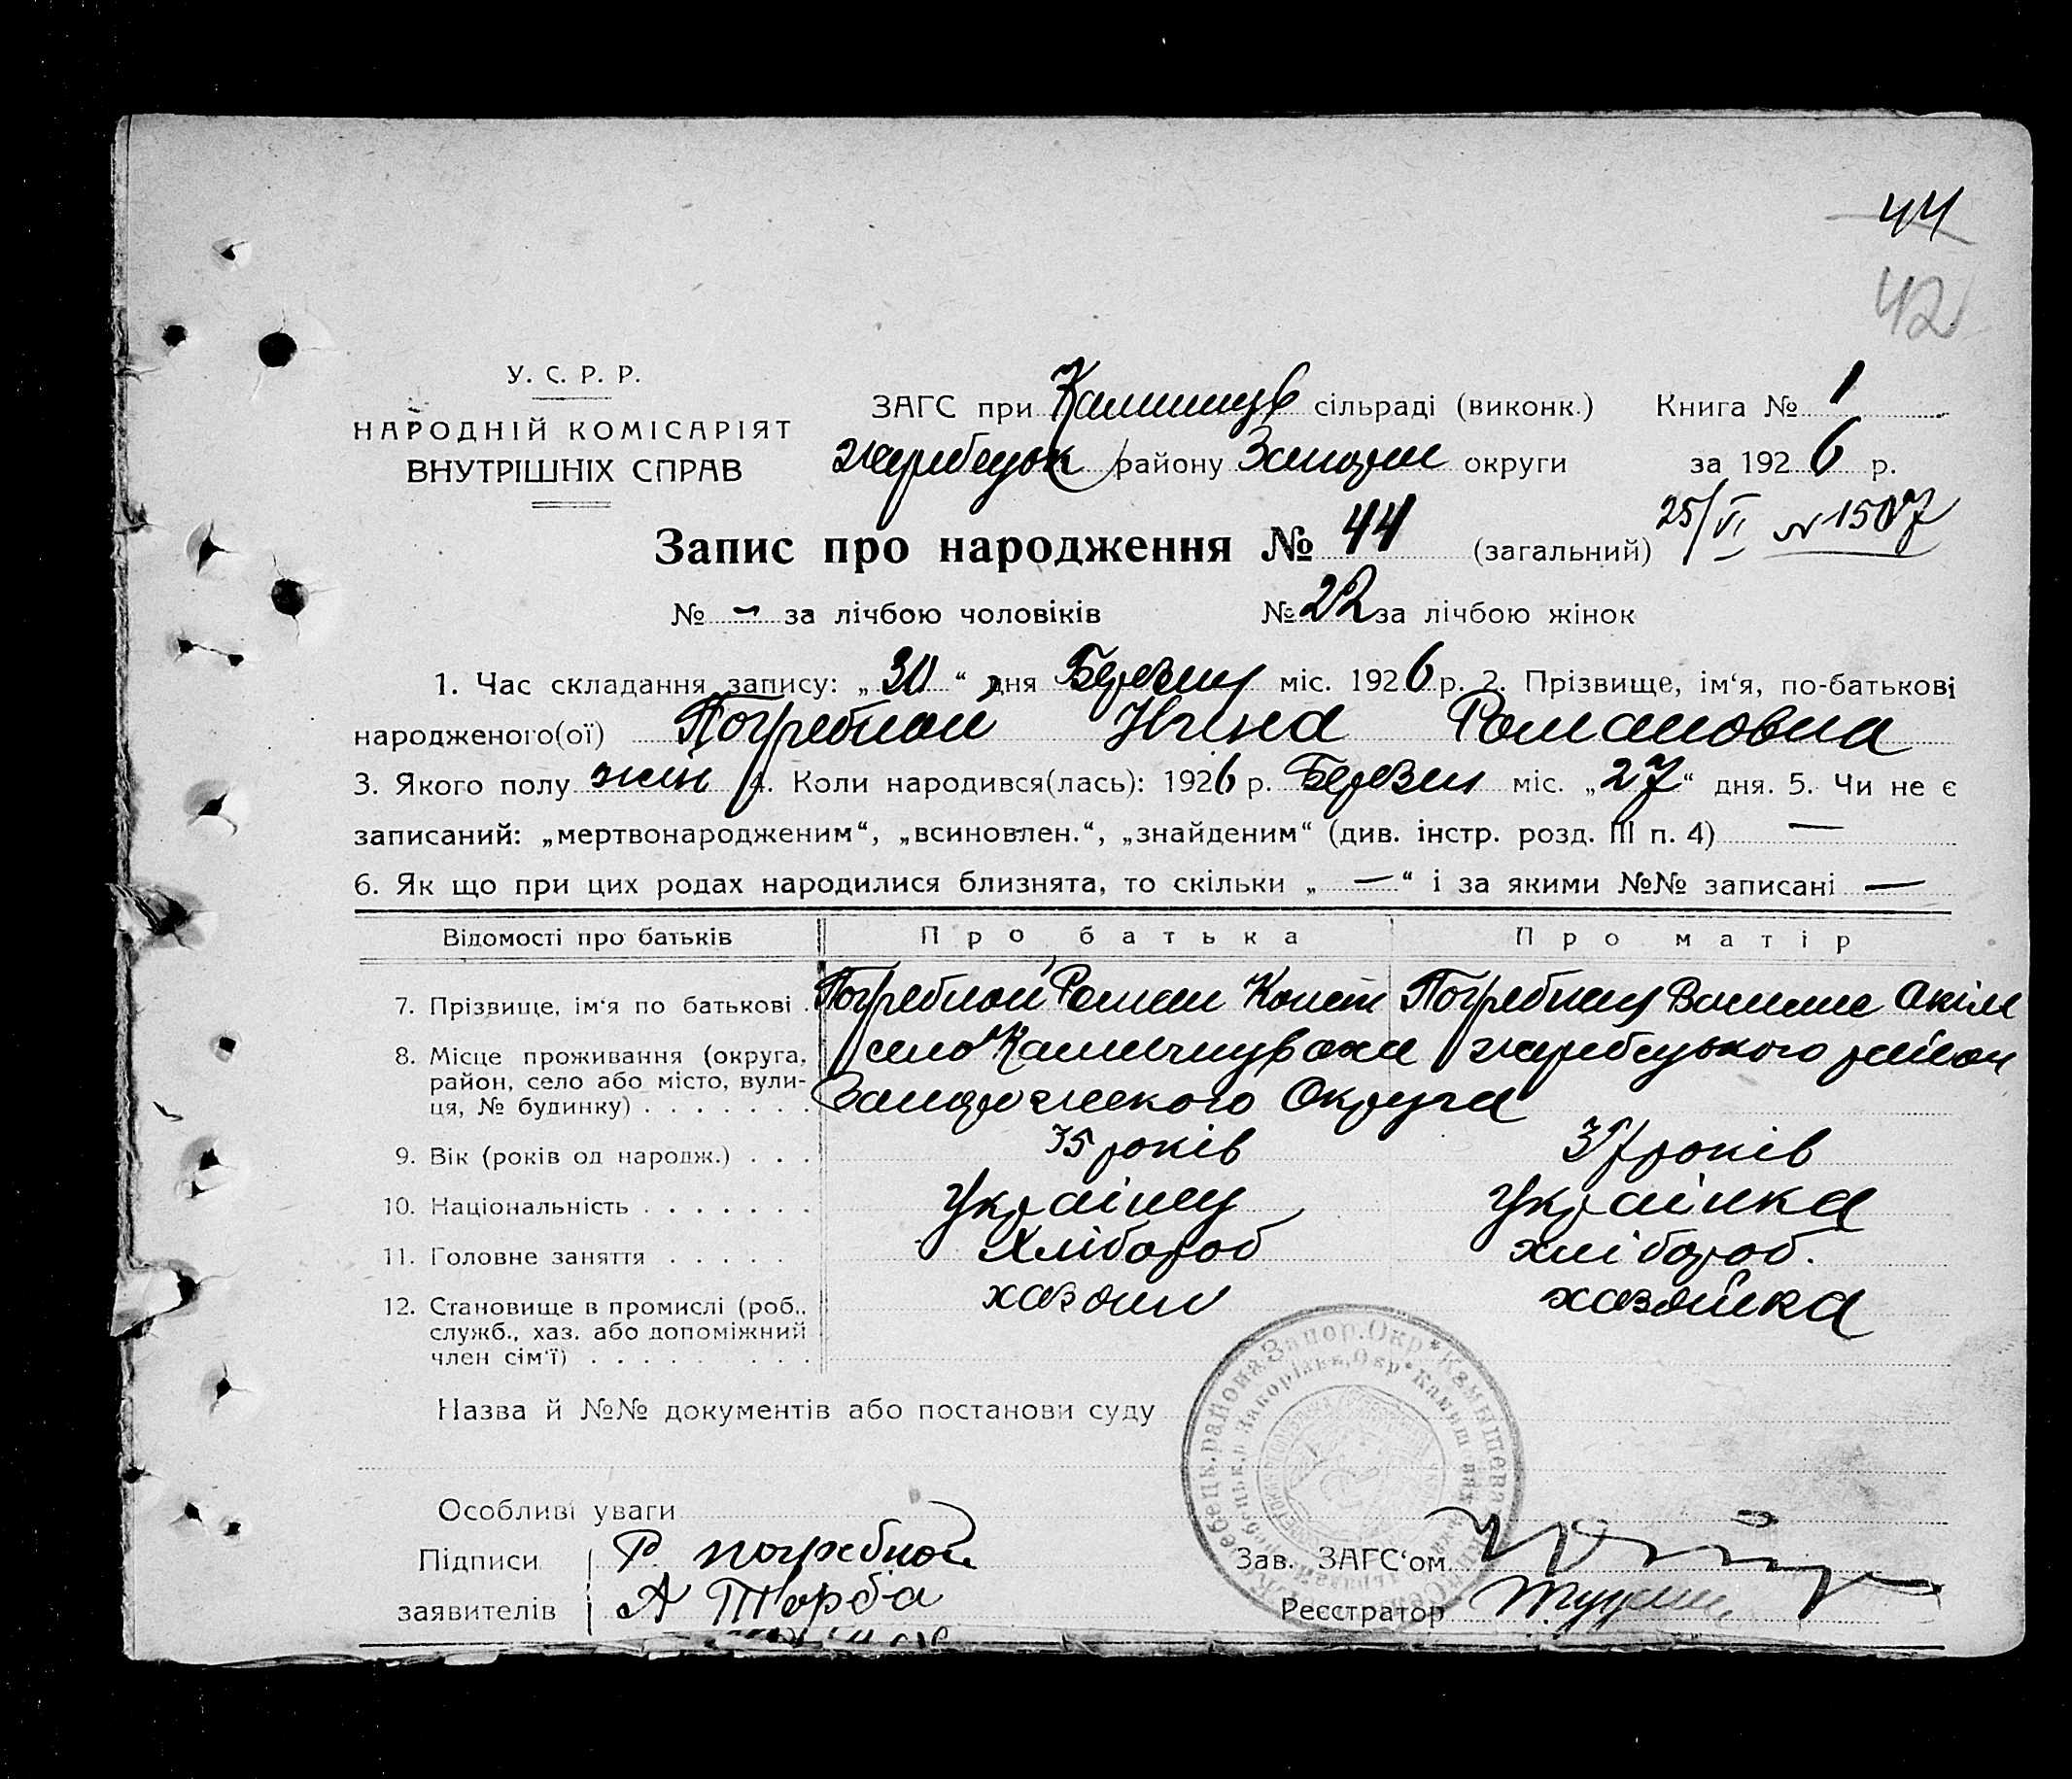 44
42
У. С. Р. Р.
НАРОДНІЙ КОМІСАРІЯТ
ВНУТРІШНІХ СПРАВ
ЗАГС при Камишув сільраді (виконк.) Книга № 1
жеребецьк району Запоріж округи за 1926 р.
25/VI N 1507
Запис про народження № 44 (загальний)
№ – за лічбою чоловіків № 22 за лічбою жінок
1. Час складання запису: „30“ дня Березня міс. 1926 р. 2. Прізвище, ім‘я, по-батькові
народженого(ої) Погребной Нина Романовна
3. Якого полу жін 4. Коли народився(лась): 1926 р. Березня міс. „27“ дня. 5. Чи не є
записаний: „мертвонародженим“, „всиновлен.“, „знайденим“ (див. інстр. розд. III п. 4) —
6. Як що при цих родах народилися близнята, то скільки „—“ і за якими №№ записані —
Відомості про батьків Про батька Про матір
7. Прізвище, ім‘я по батькові Погребной Роман Конст Погребная Акім
8. Місце проживання (округа, район, село або місто, вули-ця, № будинку) село Камишуваха жеребецького район
Запорожского Округа
9. Вік (років од народж.) 35 років 37 років
10. Національність Українец Українка
11. Головне заняття Хлібороб хлібороб.
12. Становище в промислі (роб., служб., хаз. або допоміжний член сім‘ї) хазяин хазяйка
Назва й №№ документів або постанови суду
Особливі уваги
Підписи Р. погребной Зав. ЗАГС‘ом
заявителів А Торба Реєстратор